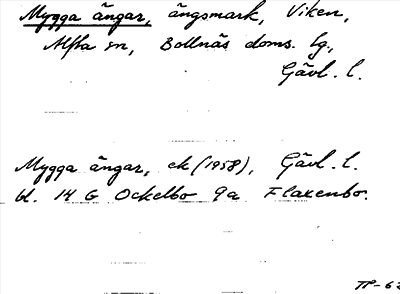 Mygga ängar, ängsmark, Viken,
Alfta sn, Bollnäs doms. lg.,
Gävl. l.
Mygga ängar, ek (1958), Gävl. l.
bl. 14 G Ockelbo 9a Flaxenbo.
TP-62